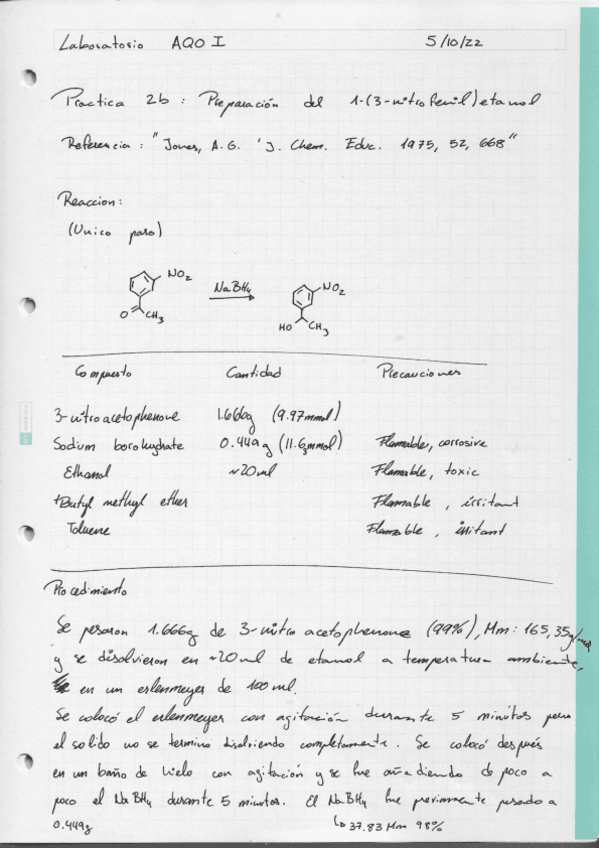 Laboratorio AQO I 5/10/22
Practica 2b : Preparación del 1-(3-nitrofenil)etanol
Referencia : "Jones, A.G. 'J. Chem. Educ. 1975, 52, 668"
Reaccion:
(Unico paso)
NO2 NaBH4 NO2
O CH3 HO CH3
Compuesto Cantidad Precauciones
3-nitroacetophenone 1.666g (9.97mmol)
Sodium borohydrate 0.449g (11.63mmol) Flamable, corrosive
Ethanol ~20ml Flamable, toxic
tButyl methyl ether Flamable, irritant
Toluene Flamable, irritant
Procedimiento
Se pesaron 1.666g de 3-nitroacetophenone (99%), Mm: 165,35g/mol
y se disolvieron en ~20ml de etanol a temperatura ambiente,
en un erlenmeyer de 100ml.
Se colocó el erlenmeyer con agitación durante 5 minutos pero
el solido no se termino disolviendo completamente. Se colocó después
en un baño de hielo con agitación y se fue añadiendo de poco a
poco el NaBH4 durante 5 minutos. El NaBH4 fue previamente pesado a
0.449g ↳ 37.83 Mm 98%